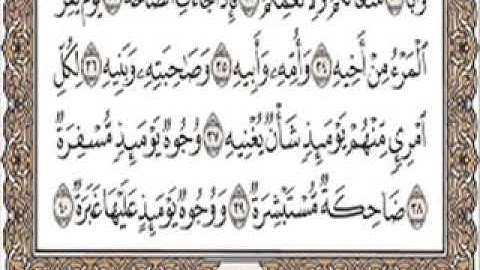 مَّتَٰعًا لَّكُمۡ وَلِأَنۡعَٰمِكُمۡ ٣٢ فَإِذَا جَآءَتِ ٱلصَّآخَّةُ ٣٣ يَوۡمَ يَفِرُّ
ٱلۡمَرۡءُ مِنۡ أَخِيهِ ٣٤ وَأُمِّهِۦ وَأَبِيهِ ٣٥ وَصَٰحِبَتِهِۦ وَبَنِيهِ ٣٦ لِكُلِّ
ٱمۡرِيٕٖ مِّنۡهُمۡ يَوۡمَئِذٖ شَأۡنٞ يُغۡنِيهِ ٣٧ وُجُوهٞ يَوۡمَئِذٖ مُّسۡفِرَةٞ
٣٨ ضَاحِكَةٞ مُّسۡتَبۡشِرَةٞ ٣٩ وَوُجُوهٞ يَوۡمَئِذٍ عَلَيۡهَا غَبَرَةٞ ٤٠